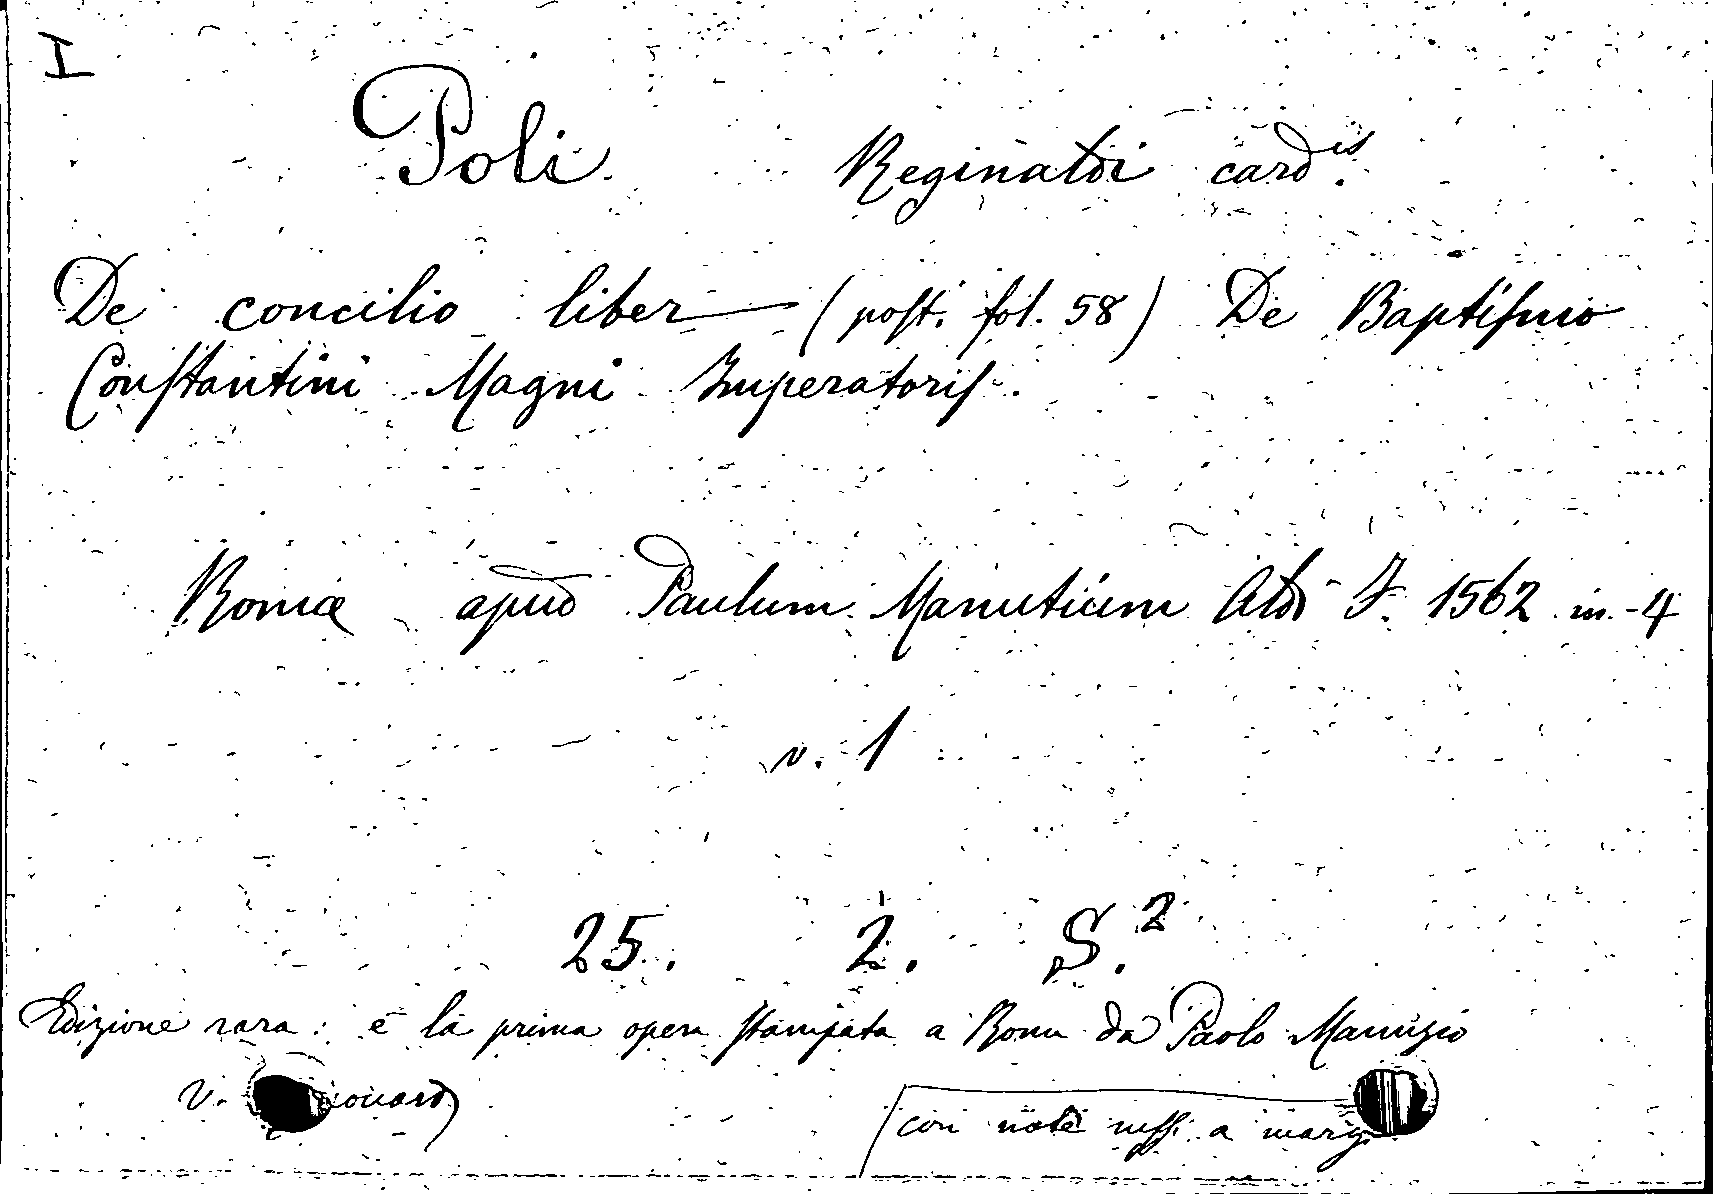 I
Poli Reginaldi card.is
De concilio liber — (post. fol. 58) De Baptiſmo
Conſtantini Magni Imperatoriſ.
Romæ apud Paulum Manutium Aldi F. 1562 in-4
v. 1
25. 2. S.2
Edizione rara: è la prima opera ſtampata a Roma da Paolo Manuzio
V.
con note mſſ. a marg.